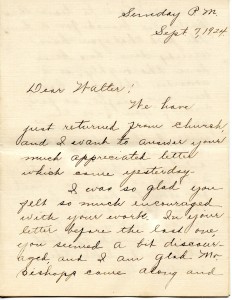 Sunday P.M.
Sept 7, 1924
Dear Walter:
We have
just returned from church,
and I want to answer your
much appreciated letter
which came yesterday.
I was so glad you
felt so much encouraged
with your work. In your
letter before the last one,
you seemed a bit discour-
aged, and I am glad Mr.
came along and